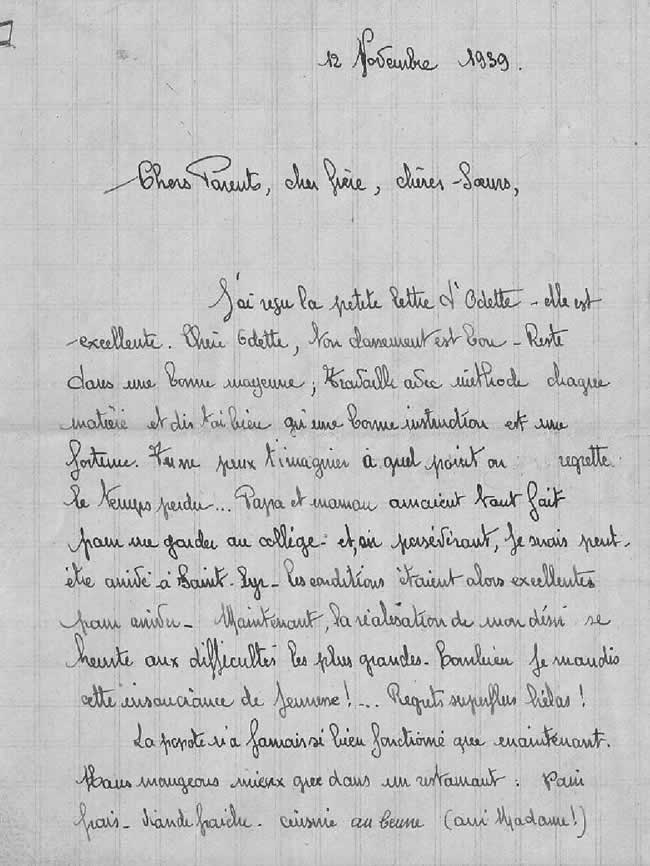 12 Novembre 1939.
Chers Parents, cher frère, chères Soeurs,
J'ai reçu la petite lettre d'Odette - elle est
excellente. Chère Odette, ton classement est bon - Reste
dans une bonne moyenne ; travaille avec méthode chaque
matière et dis toi bien qu'une bonne instruction est une
fortune. Tu ne peux t'imaginer à quel point on regrette
le temps perdu... Papa et maman auraient tout fait
pour me garder au collège - et, en persévérant, je serais peut-
être arrivé à Saint-Cyr - les conditions étaient alors excellentes
pour arriver - Maintenant, la réalisation de mon désir se
heurte aux difficultés les plus grandes - Combien je maudis
cette insouciance de jeunesse ! ... Regrets superflus hélas !
La popote n'a jamais si bien fonctionné que maintenant.
Nous mangeons mieux que dans un restaurant : Pain
frais - viande fraîche - cuisine au beurre (oui Madame !)